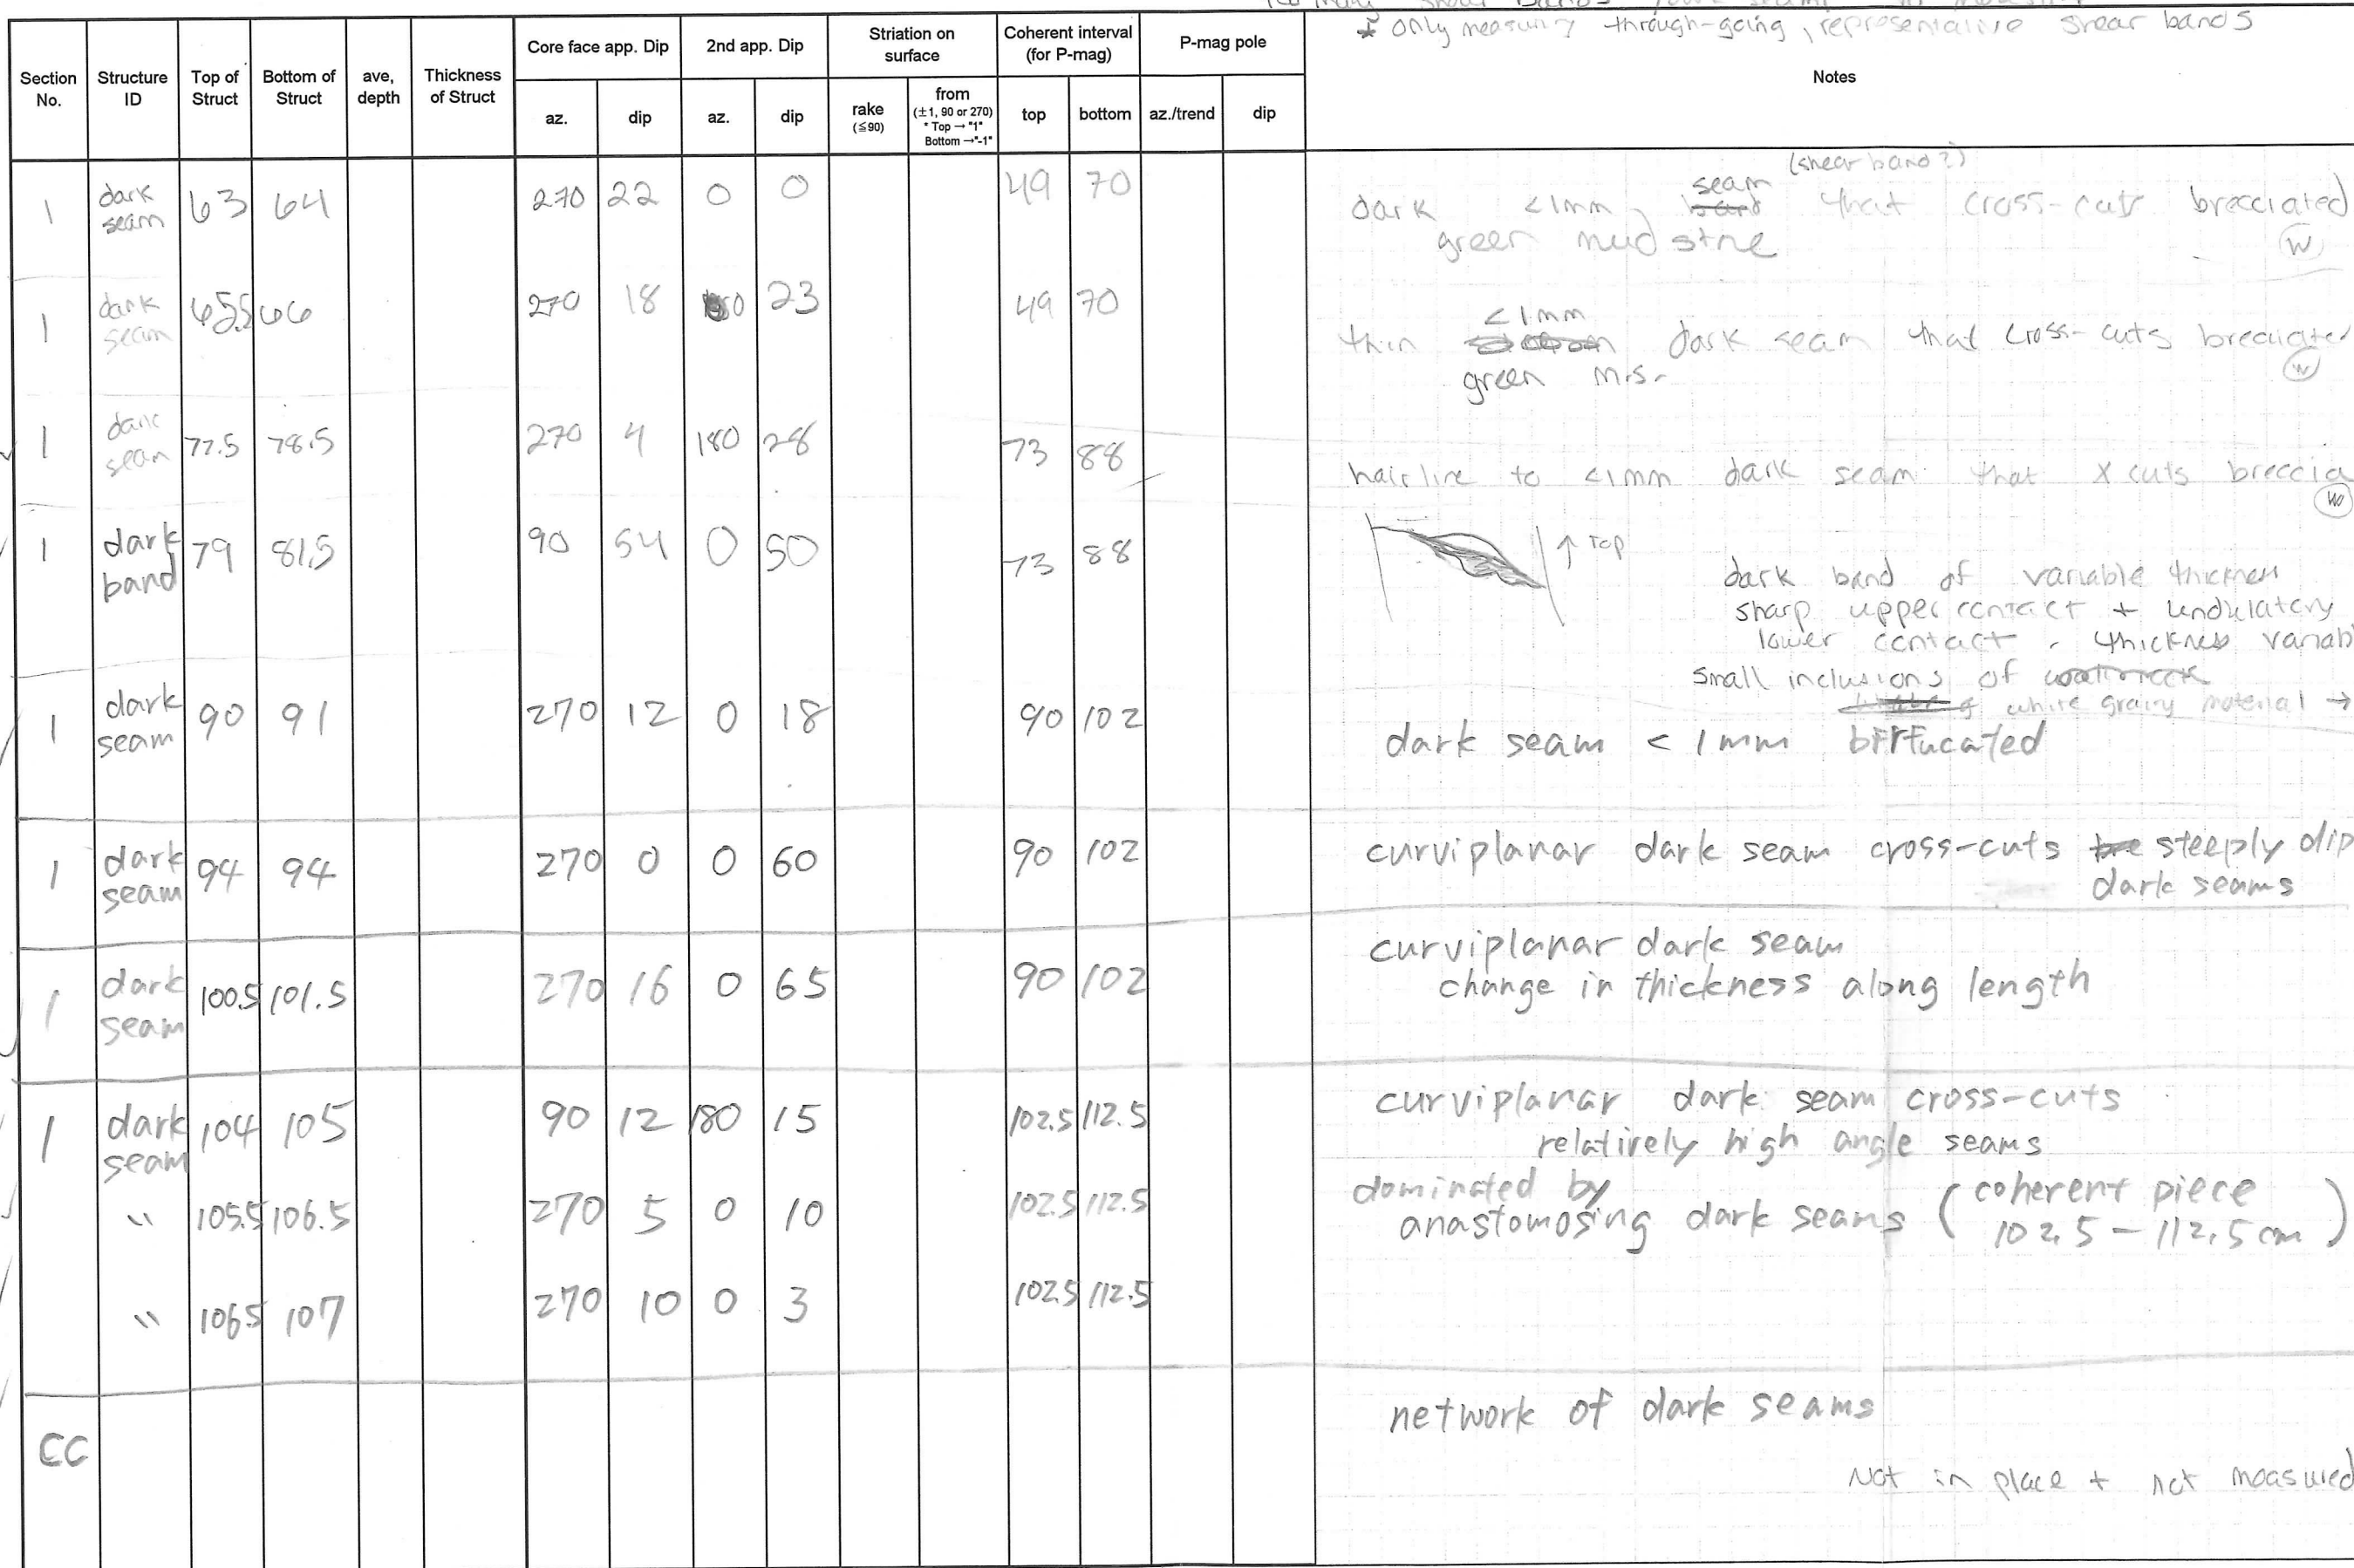 * only measuring through-going, representative shear bands
Section No. Structure ID Top of Struct Bottom of Struct ave, depth Thickness of Struct Core face app. Dip 2nd app. Dip Striation on surface Coherent interval (for P-mag) P-mag pole Notes
az. dip az. dip rake (≦90) from (±1, 90 or 270) * Top → "1" Bottom →"-1" top bottom az./trend dip
(shear band?)
1 dark seam 63 64 270 22 0 0 49 70 dark <1mm, seam that cross-cuts brecciated
green mudstne
W
1 dark seam 65.5 66 270 18 0 23 49 70 thin <1mm dark seam that cross-cuts brecciated
green m.s.
W
1 dark seam 77.5 78.5 270 4 180 28 73 88 hairline to <1mm dark seam that x cuts breccia
W
1 dark band 79 81.5 90 54 0 50 73 88 ↑ Top
dark band of variable thickness
sharp upper contact + undulatory
lower contact - thickness variab
small inclusions of
white grainy material →
1 dark seam 90 91 270 12 0 18 90 102 dark seam < 1mm bifrfucated
1 dark seam 94 94 270 0 0 60 90 102 curviplanar dark seam cross-cuts steeply dip
dark seams
1 dark seam 100.5 101.5 270 16 0 65 90 102 curviplanar dark seam
change in thickness along length
1 dark seam 104 105 90 12 180 15 102.5 112.5 curviplanar dark seam cross-cuts
relatively high angle seams
" 105.5 106.5 270 5 0 10 102.5 112.5 dominated by
anastomosing dark seams (coherent piece
102.5 - 112.5 cm)
" 106.5 107 270 10 0 3 102.5 112.5
CC network of dark seams
Not in place + not measured